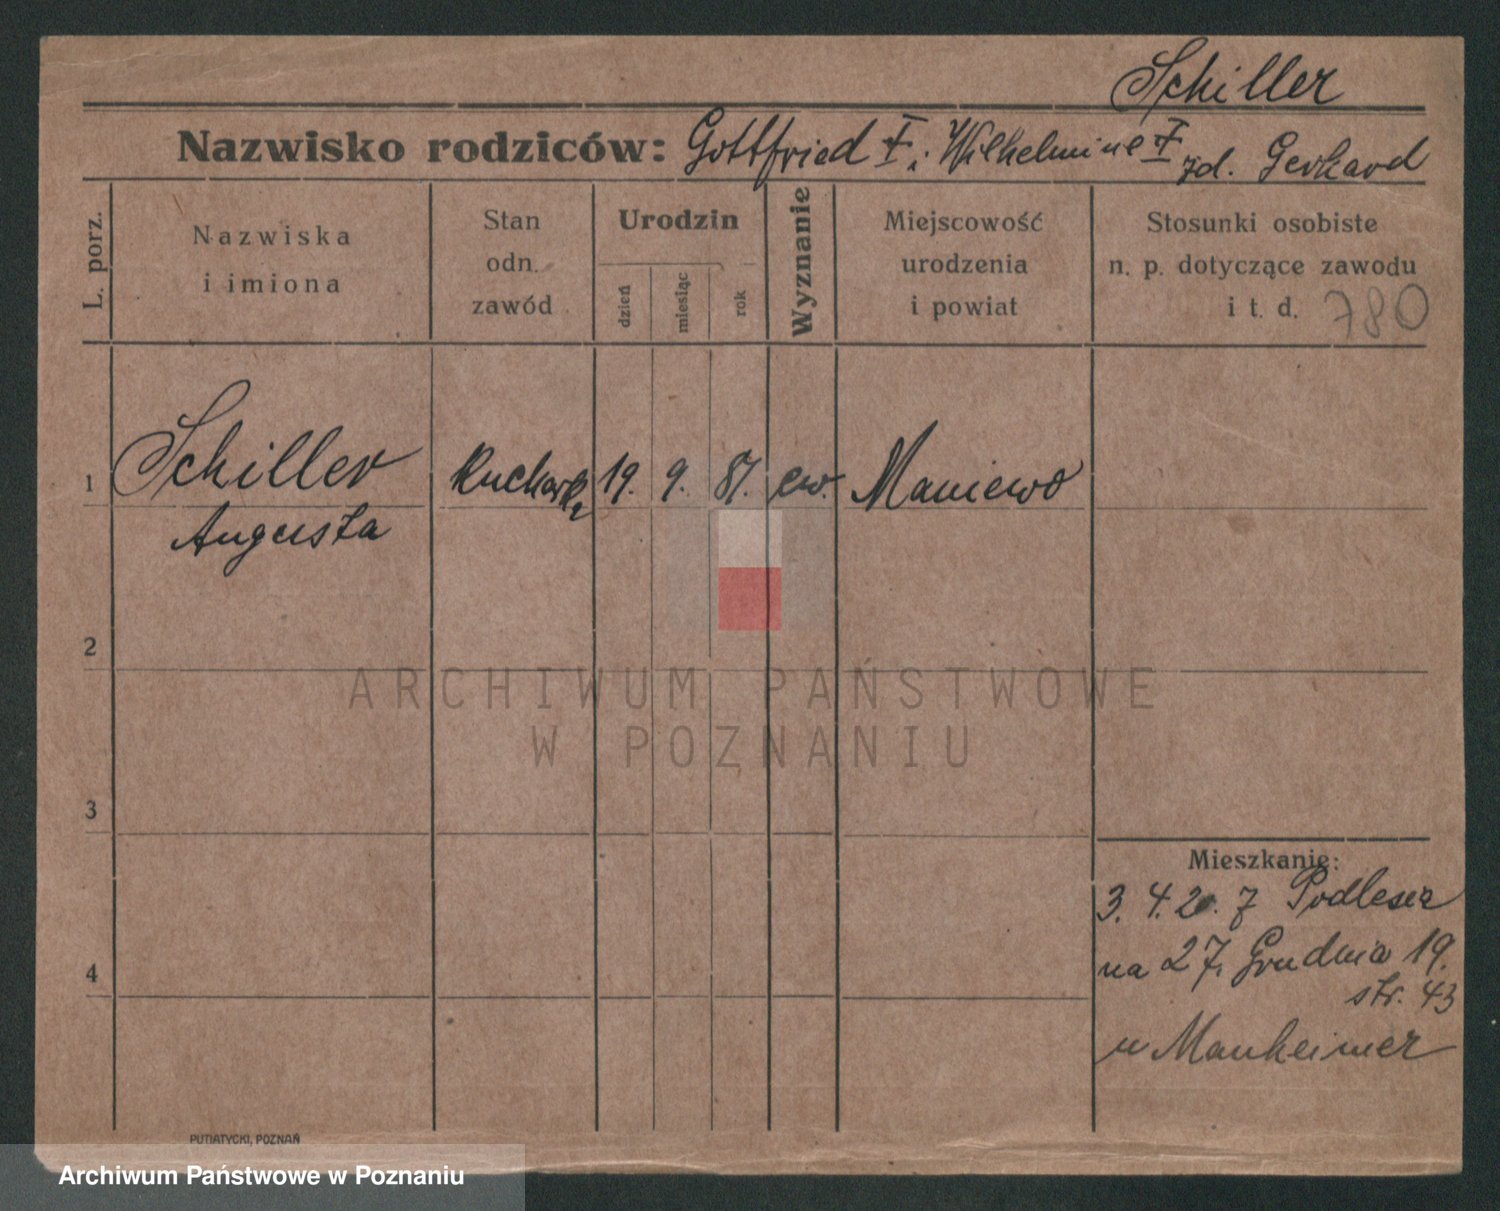 Schiller
Nazwisko rodziców: Gottfried †, Wilhelmine † zd. Gerhard
L. porz.
Nazwiska
i imiona
Stan
odn.
zawód
Urodzin
dzień
miesiąc
rok
Wyznanie
Miejscowość
urodzenia
i powiat
Stosunki osobiste
n. p. dotyczące zawodu
i t. d. 780
1 Schiller Kucharka 19. 9. 87. ew. Maniewo
Augusta
2
3
4
Mieszkanie:
3. 4. 20. z
na 27 Grudnia 19.
str. 43
u Manheimer
PUTIATYCKI, POZNAŃ
ARCHIWUM PAŃSTWOWE
W POZNANIU
Archiwum Państwowe w Poznaniu